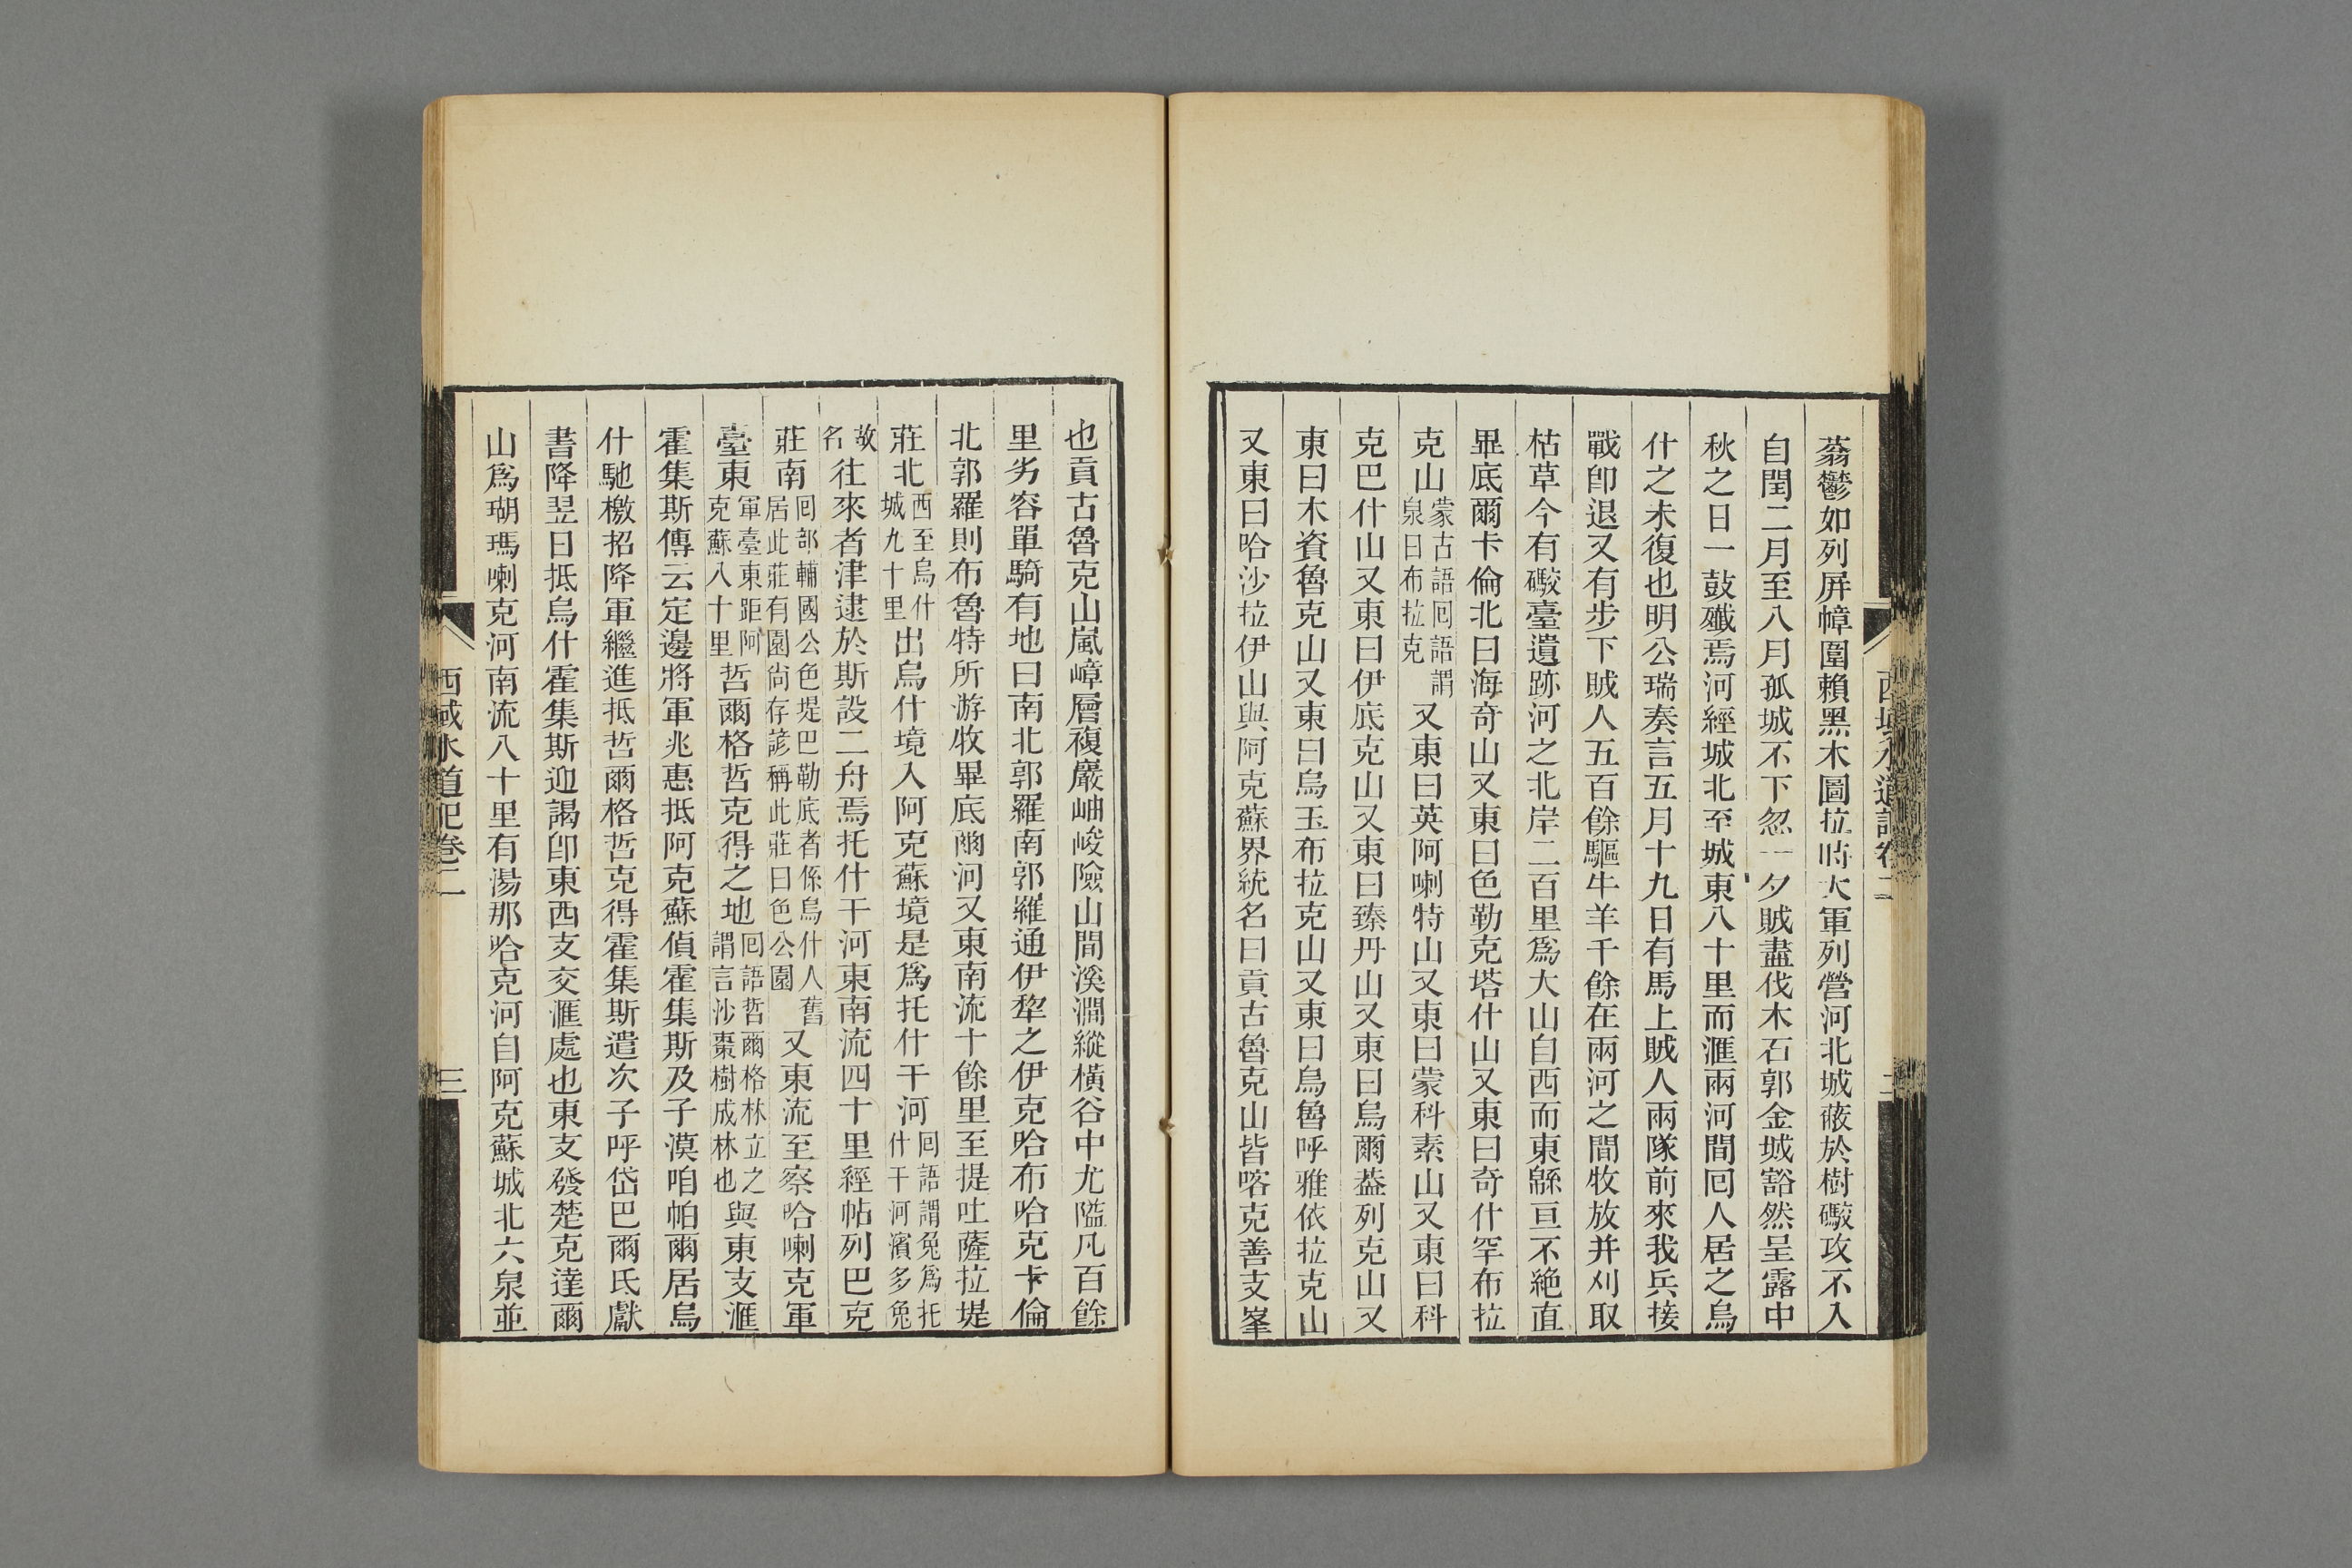 蓊鬱如列屏幛圍賴黑木圖拉時大軍列營河北城蔽於樹礮攻不入
自閏二月至八月孤城不下忽一夕賊盡伐木石郭金城豁然呈露中
秋之日一鼓殲焉河經城北至城東八十里而滙兩河間回人居之烏
什之未復也明公瑞奏言五月十九日有馬上賊人兩隊前來我兵接
戰卽退又有步下賊人五百餘驅牛羊千餘在兩河之間牧放并刈取
枯草今有礮臺遺跡河之北岸二百里爲大山自西而東緜亘不絶直
畢底爾卡倫北曰海奇山又東曰色勒克塔什山又東曰奇什罕布拉
克山蒙古語回語謂泉曰布拉克又東曰英阿喇特山又東曰蒙科素山又東曰科
克巴什山又東曰伊底克山又東曰臻丹山又東曰烏爾葢列克山又
東曰木資魯克山又東曰烏玉布拉克山又東曰烏魯呼雅依拉克山
又東曰哈沙拉伊山與阿克蘇界統名曰貢古魯克山皆喀克善支峯
西域水道記卷二
二
也貢古魯克山嵐嶂層複巖岫峻險山間溪澗縱橫谷中尤隘凡百餘
里劣容單騎有地曰南北郭羅南郭羅通伊犂之伊克哈布哈克卡倫
北郭羅則布魯特所游牧畢底爾河又東南流十餘里至提吐薩拉堤
莊北西至烏什城九十里出烏什境入阿克蘇境是爲托什干河回語謂兔爲托什干河濱多兔
故名往來者津逮於斯設二舟焉托什干河東南流四十里經帖列巴克
莊南回部輔國公色堤巴勒底者係烏什人舊居此莊有園尙存諺稱此莊曰色公園又東流至察哈喇克軍
臺東軍臺東距阿克蘇八十里哲爾格哲克得之地回語哲爾格林立之謂言沙棗樹成林也與東支滙
霍集斯傳云定邊將軍兆惠抵阿克蘇偵霍集斯及子漠咱帕爾居烏
什馳檄招降軍繼進抵哲爾格哲克得霍集斯遣次子呼岱巴爾氐獻
書降翌日抵烏什霍集斯迎謁卽東西支交滙處也東支發楚克達爾
山爲瑚瑪喇克河南流八十里有湯那哈克河自阿克蘇城北六泉並
西域水道記卷二
三